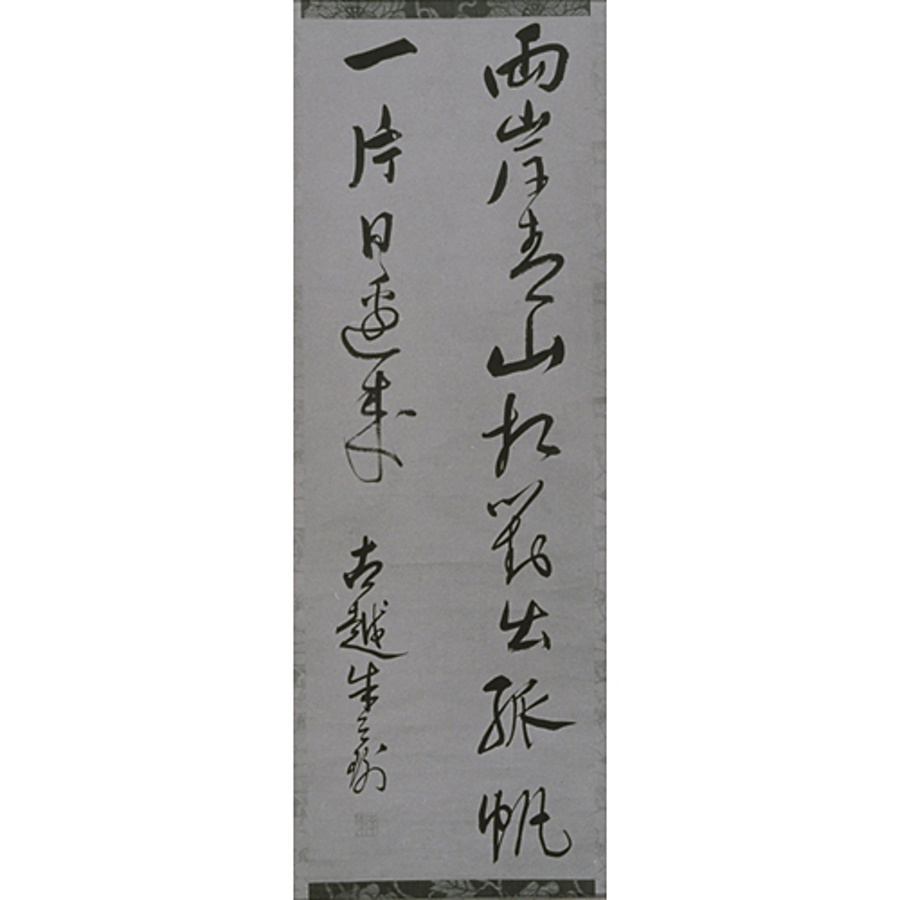 兩岸青山相對出孤帆
一片日邊来 古越朱之瑜